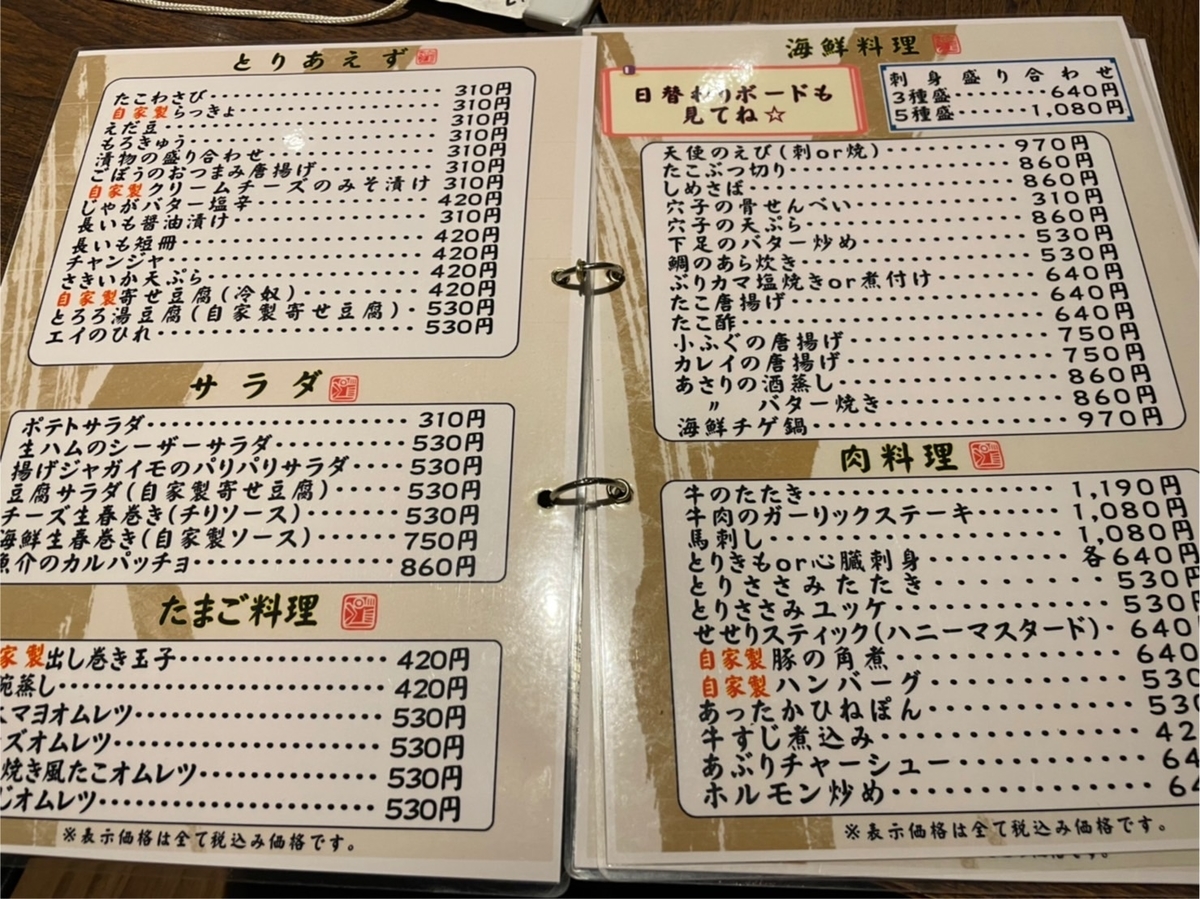 とりあえず
たこわさび 310円
自家製らっきょ 310円
えだ豆 310円
もろきゅう 310円
漬物の盛り合わせ 310円
ごぼうのおつまみ唐揚げ 310円
自家製クリームチーズのみそ漬け 310円
じゃがバター塩辛 420円
長いも醤油漬け 310円
長いも短冊 420円
チャンジャ 420円
さきいか天ぷら 420円
自家製寄せ豆腐(冷奴) 420円
とろろ湯豆腐(自家製寄せ豆腐) 530円
エイのひれ 530円
サラダ
ポテトサラダ 310円
生ハムのシーザーサラダ 530円
揚げジャガイモのパリパリサラダ 530円
豆腐サラダ(自家製寄せ豆腐) 530円
チーズ生春巻き(チリソース) 530円
海鮮生春巻き(自家製ソース) 750円
魚介のカルパッチョ 860円
たまご料理
家製出し巻き玉子 420円
碗蒸し 420円
マヨオムレツ 530円
ズオムレツ 530円
焼き風たこオムレツ 530円
じオムレツ 530円
※表示価格は全て税込み価格です。
海鮮料理
日替わりボードも
見てね☆
刺身盛り合わせ
3種盛 640円
5種盛 1,080円
天使のえび(刺or焼) 970円
たこぶつ切り 860円
しめさば 860円
穴子の骨せんべい 310円
穴子の天ぷら 860円
下足のバター炒め 530円
鯛のあら炊き 530円
ぶりカマ塩焼きor煮付け 640円
たこ唐揚げ 640円
たこ酢 640円
小ふぐの唐揚げ 750円
カレイの唐揚げ 750円
あさりの酒蒸し 860円
〃 バター焼き 860円
海鮮チゲ鍋 970円
肉料理
牛のたたき 1,190円
牛肉のガーリックステーキ 1,080円
馬刺し 1,080円
とりきもor心臓刺身 各640円
とりささみたたき 530円
とりささみユッケ 530
せせりスティック(ハニーマスタード) 640
自家製豚の角煮 640
自家製ハンバーグ 530
あったかひねぽん 530
牛すじ煮込み 42
あぶりチャーシュー 64
ホルモン炒め 6
※表示価格は全て税込み価格です。